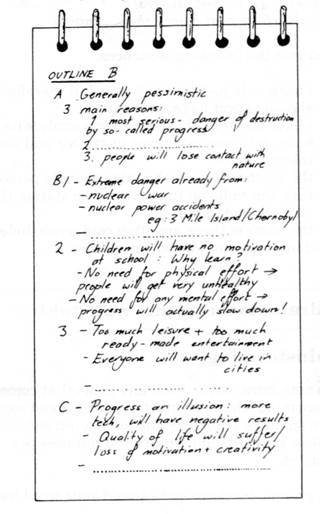 OUTLINE B
A Generally pessimistic
3 main reasons:
1 most serious - danger of destruction
by so-called progress
2..............................
3. people will lose contact with
nature
B/1 - Extreme danger already from:
- nuclear war
- nuclear power accidents
eg: 3 Mile Island/Chernobyl
- ..............................
2 - Children will have no motivation
at school: Why learn?
- No need for physical effort →
people will get very unhealthy
- No need for any mental effort →
progress will actually slow down!
3 - Too much leisure + too much
ready-made entertainment
- Everyone will want to live in
cities
- ..............................
C - Progress an illusion: more
tech, will have negative results
- Quality of life will suffer/
loss of motivation + creativity
- ..............................